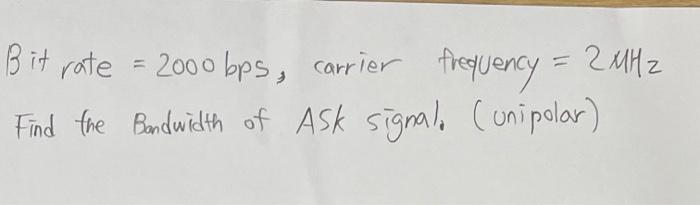 Bit rate = 2000 bps, carrier frequency = 2 MHz
Find the Bandwidth of ASK signal. (unipolar)